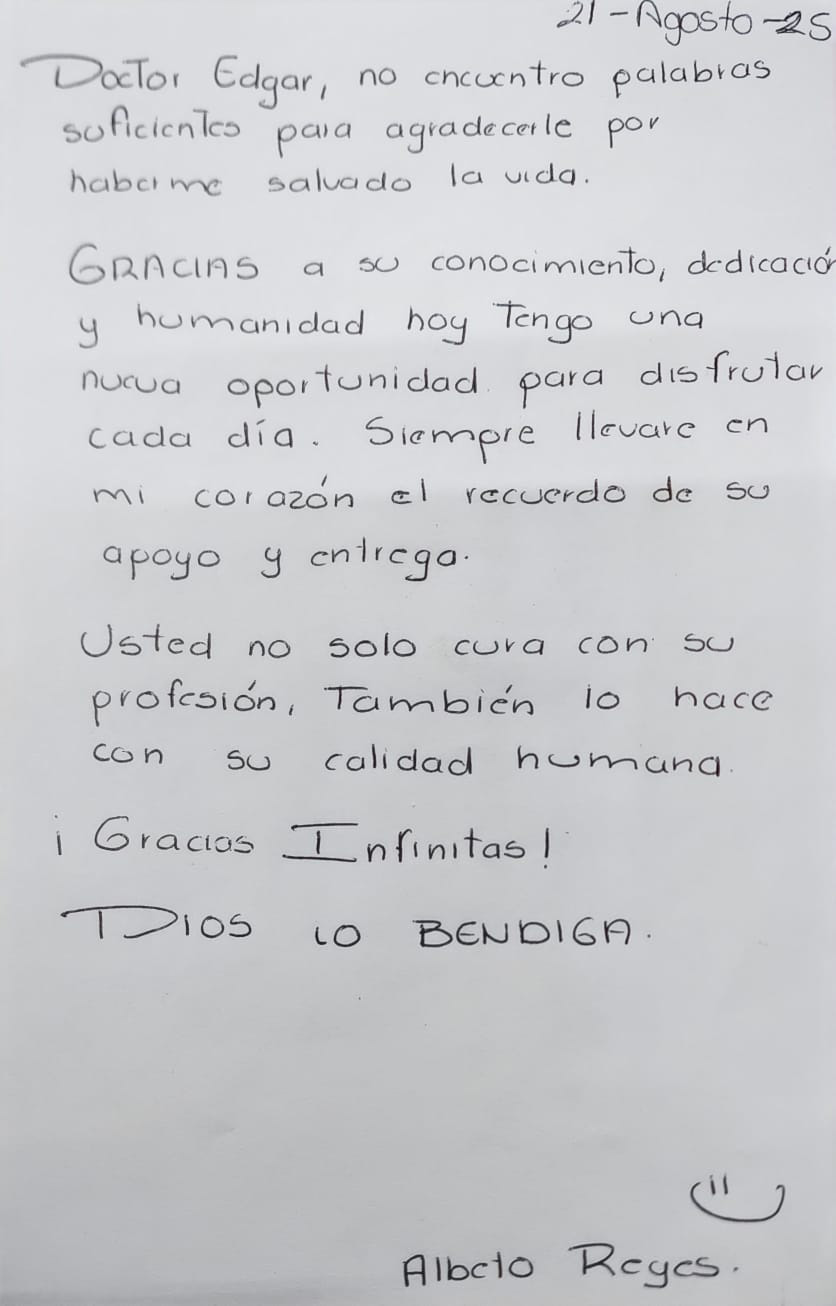 21-Agosto-25
Doctor Edgar, no encuentro palabras
suficientes para agradecerle por
haberme salvado la vida.
GRACIAS a su conocimiento, dedicación
y humanidad hoy Tengo una
nueva oportunidad para disfrutar
cada día. Siempre llevare en
mi corazón el recuerdo de su
apoyo y entrega.
Usted no solo cura con su
profesión, También lo hace
con su calidad humana.
¡Gracias Infinitas!
DIOS LO BENDIGA.
Albeto Reyes.